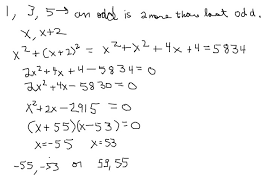 1, 3, 5 → an odd is 2 more than last odd.
x, x+2
x²+(x+2)² = x²+x²+4x+4=5834
2x²+4x+4-5834=0
2x²+4x-5830=0
x²+2x-2915=0
(x+55)(x-53)=0
x=-55 x=53
-55, -53 or 53, 55